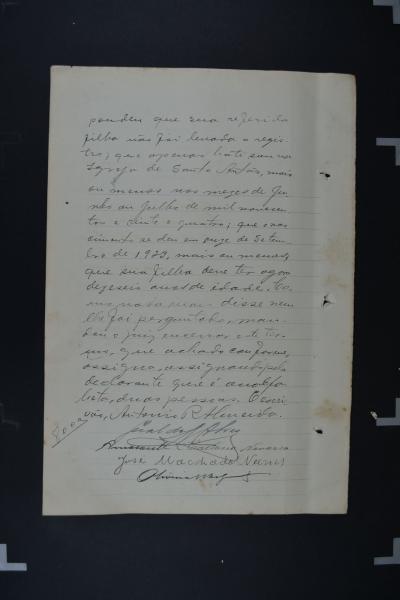 pondeu que sua referida
filha não foi levada a regis-
tro; que apenas batisou na
Igreja de Santo Antão, mais
ou menos nos mezes de Ju-
nho ou Julho de mil novecen-
tos e vinte e quatro; que o nas-
cimento se deu em onze de Setem-
bro de 1923, mais ou menos,
que sua filha deve ter agora
dezeseis annos de idade. Co-
mo nada mais disse nem
lhe foi perguntado, man-
dou o juiz encerrar este ter-
mo, que achado conforme,
assigno, assignando pelo
declarante que é analpha-
beto, duas pessoas. O escri-
vão, Antonio R. Almeida.
José Machado Nunes